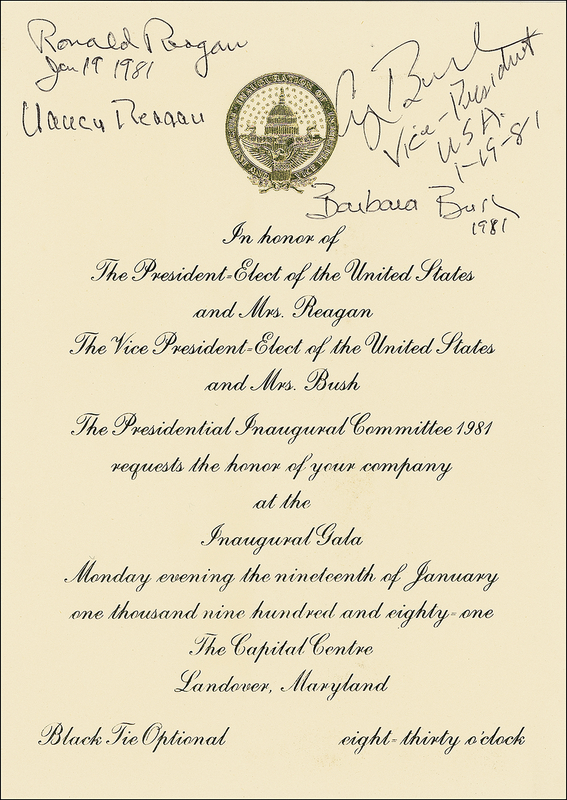 Ronald Reagan
Jan 19 1981
Nancy Reagan
G Bush
Vice-President
U.S.A.
1-19-81
Barbara Bush
1981
In honor of
The President-Elect of the United States
and Mrs. Reagan
The Vice President-Elect of the United States
and Mrs. Bush
The Presidential Inaugural Committee 1981
requests the honor of your company
at the
Inaugural Gala
Monday evening the nineteenth of January
one thousand nine hundred and eighty-one
The Capital Centre
Landover, Maryland
Black Tie Optional
eight-thirty o'clock